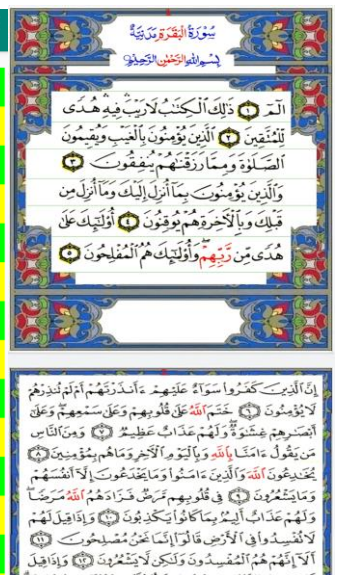 سُورَةُ الْبَقَرَةِ مَدَنِيَّةٌ
بِسْمِ اللَّهِ الرَّحْمَٰنِ الرَّحِيمِ
الٓمٓ ١ ذَٰلِكَ الْكِتَٰبُ لَا رَيْبَ ۛ فِيهِ ۛ هُدًى
لِّلْمُتَّقِينَ ٢ الَّذِينَ يُؤْمِنُونَ بِالْغَيْبِ وَيُقِيمُونَ
الصَّلَوٰةَ وَمِمَّا رَزَقْنَٰهُمْ يُنفِقُونَ ٣
وَالَّذِينَ يُؤْمِنُونَ بِمَا أُنزِلَ إِلَيْكَ وَمَا أُنزِلَ مِن
قَبْلِكَ وَبِالْآخِرَةِ هُمْ يُوقِنُونَ ٤ أُوْلَٰٓئِكَ عَلَىٰ
هُدًى مِّن رَّبِّهِمْ ۖ وَأُوْلَٰٓئِكَ هُمُ الْمُفْلِحُونَ ٥
إِنَّ الَّذِينَ كَفَرُوا سَوَآءٌ عَلَيْهِمْ ءَأَنذَرْتَهُمْ أَمْ لَمْ تُنذِرْهُمْ
لَا يُؤْمِنُونَ ٦ خَتَمَ اللَّهُ عَلَىٰ قُلُوبِهِمْ وَعَلَىٰ سَمْعِهِمْ ۖ وَعَلَىٰ
أَبْصَٰرِهِمْ غِشَٰوَةٌ ۖ وَلَهُمْ عَذَابٌ عَظِيمٌ ٧ وَمِنَ النَّاسِ
مَن يَقُولُ ءَامَنَّا بِاللَّهِ وَبِالْيَوْمِ الْآخِرِ وَمَا هُم بِمُؤْمِنِينَ ٨
يُخَٰدِعُونَ اللَّهَ وَالَّذِينَ ءَامَنُوا وَمَا يَخْدَعُونَ إِلَّا أَنفُسَهُمْ
وَمَا يَشْعُرُونَ ٩ فِي قُلُوبِهِم مَّرَضٌ فَزَادَهُمُ اللَّهُ مَرَضًا ۖ
وَلَهُمْ عَذَابٌ أَلِيمٌ بِمَا كَانُوا يَكْذِبُونَ ١٠ وَإِذَا قِيلَ لَهُمْ
لَا تُفْسِدُوا فِي الْأَرْضِ قَالُوا إِنَّمَا نَحْنُ مُصْلِحُونَ ١١
أَلَآ إِنَّهُمْ هُمُ الْمُفْسِدُونَ وَلَٰكِن لَّا يَشْعُرُونَ ١٢ وَإِذَا قِيلَ